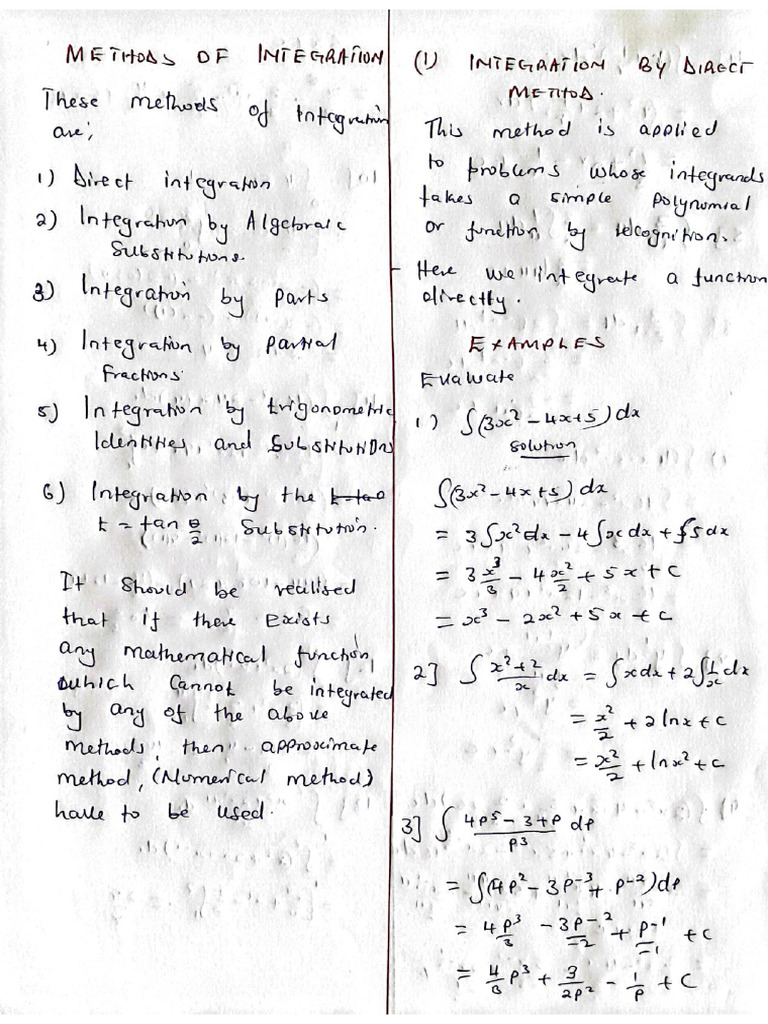 METHODS OF INTEGRATION
These methods of integration
are;
1) Direct integration
2) Integration by Algebraic
Substitutions.
3) Integration by Parts
4) Integration by partial
fractions.
5) Integration by trigonometric
Identities, and Substitutions
6) Integration by the
t = tan θ/2 Substitution.
It should be realised
that if there exists
any mathematical function,
which cannot be integrated
by any of the above
methods, then approximate
method, (Numerical method)
have to be used.
(1) INTEGRATION BY DIRECT
METHOD.
This method is applied
to problems whose integrands
takes a simple polynomial
or function by recognition.
Here we integrate a function
directly.
EXAMPLES
Evaluate
1) ∫(3x² - 4x + 5) dx
Solution
∫(3x² - 4x + 5) dx
= 3∫x²dx - 4∫x dx + ∫5 dx
= 3x³/3 - 4x²/2 + 5x + c
= x³ - 2x² + 5x + c
2] ∫ (x² + 2)/x dx = ∫x dx + 2∫1/x dx
= x²/2 + 2 ln x + c
= x²/2 + ln x² + c
3] ∫ (4p⁵ - 3 + p)/p³ dp
= ∫(4p² - 3p⁻³ + p⁻²) dp
= 4p³/3 - 3p⁻²/-2 + p⁻¹/-1 + c
= 4/3 p³ + 3/2p² - 1/p + c